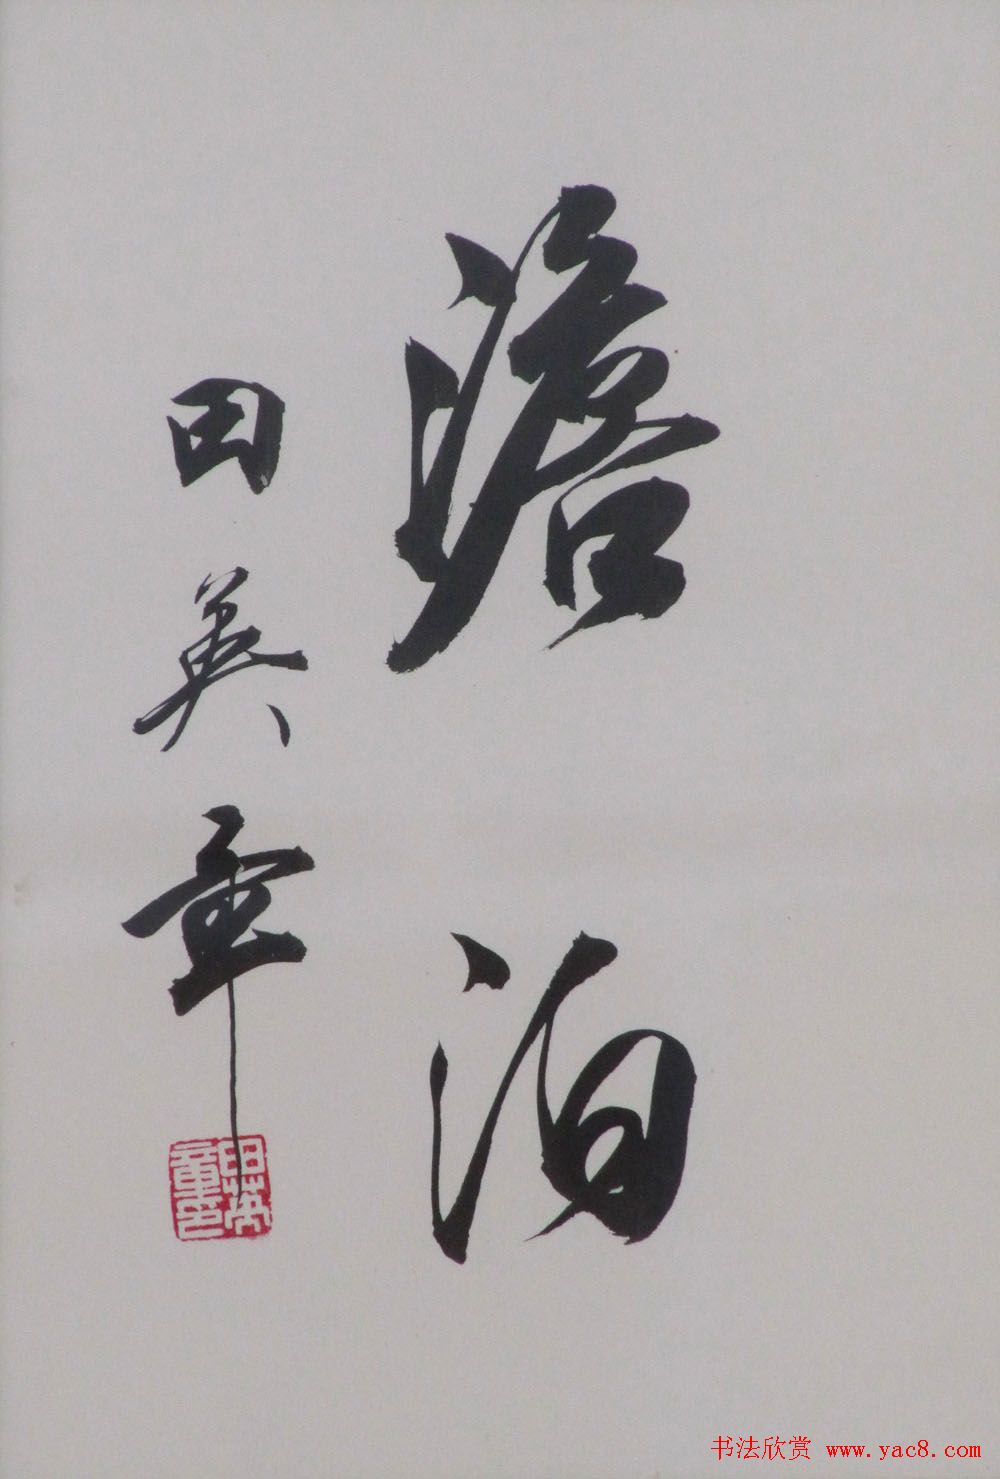 澹泊
田英章
田英章印
书法欣赏 www.yac8.com